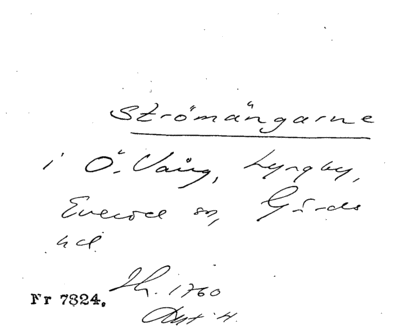 Strömängarne
i Ö. Vång, Lyngby,
Everöd sn, Gärds
hd.
Jh. 1760
Akt H.
Fr 7824.